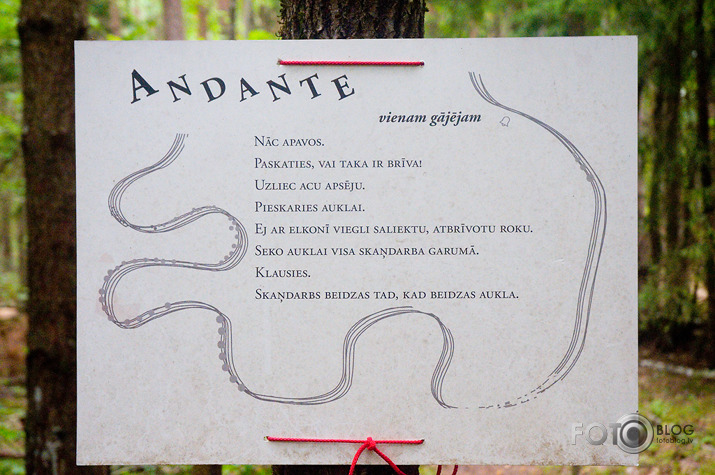 ANDANTE
vienam gājējam
Nāc apavos.
Paskaties, vai taka ir brīva!
Uzliec acu apsēju.
Pieskaries auklai.
Ej ar elkonī viegli saliektu, atbrīvotu roku.
Seko auklai visa skaņdarba garumā.
Klausies.
Skaņdarbs beidzas tad, kad beidzas aukla.
FOTO BLOG
fotoblog.lv